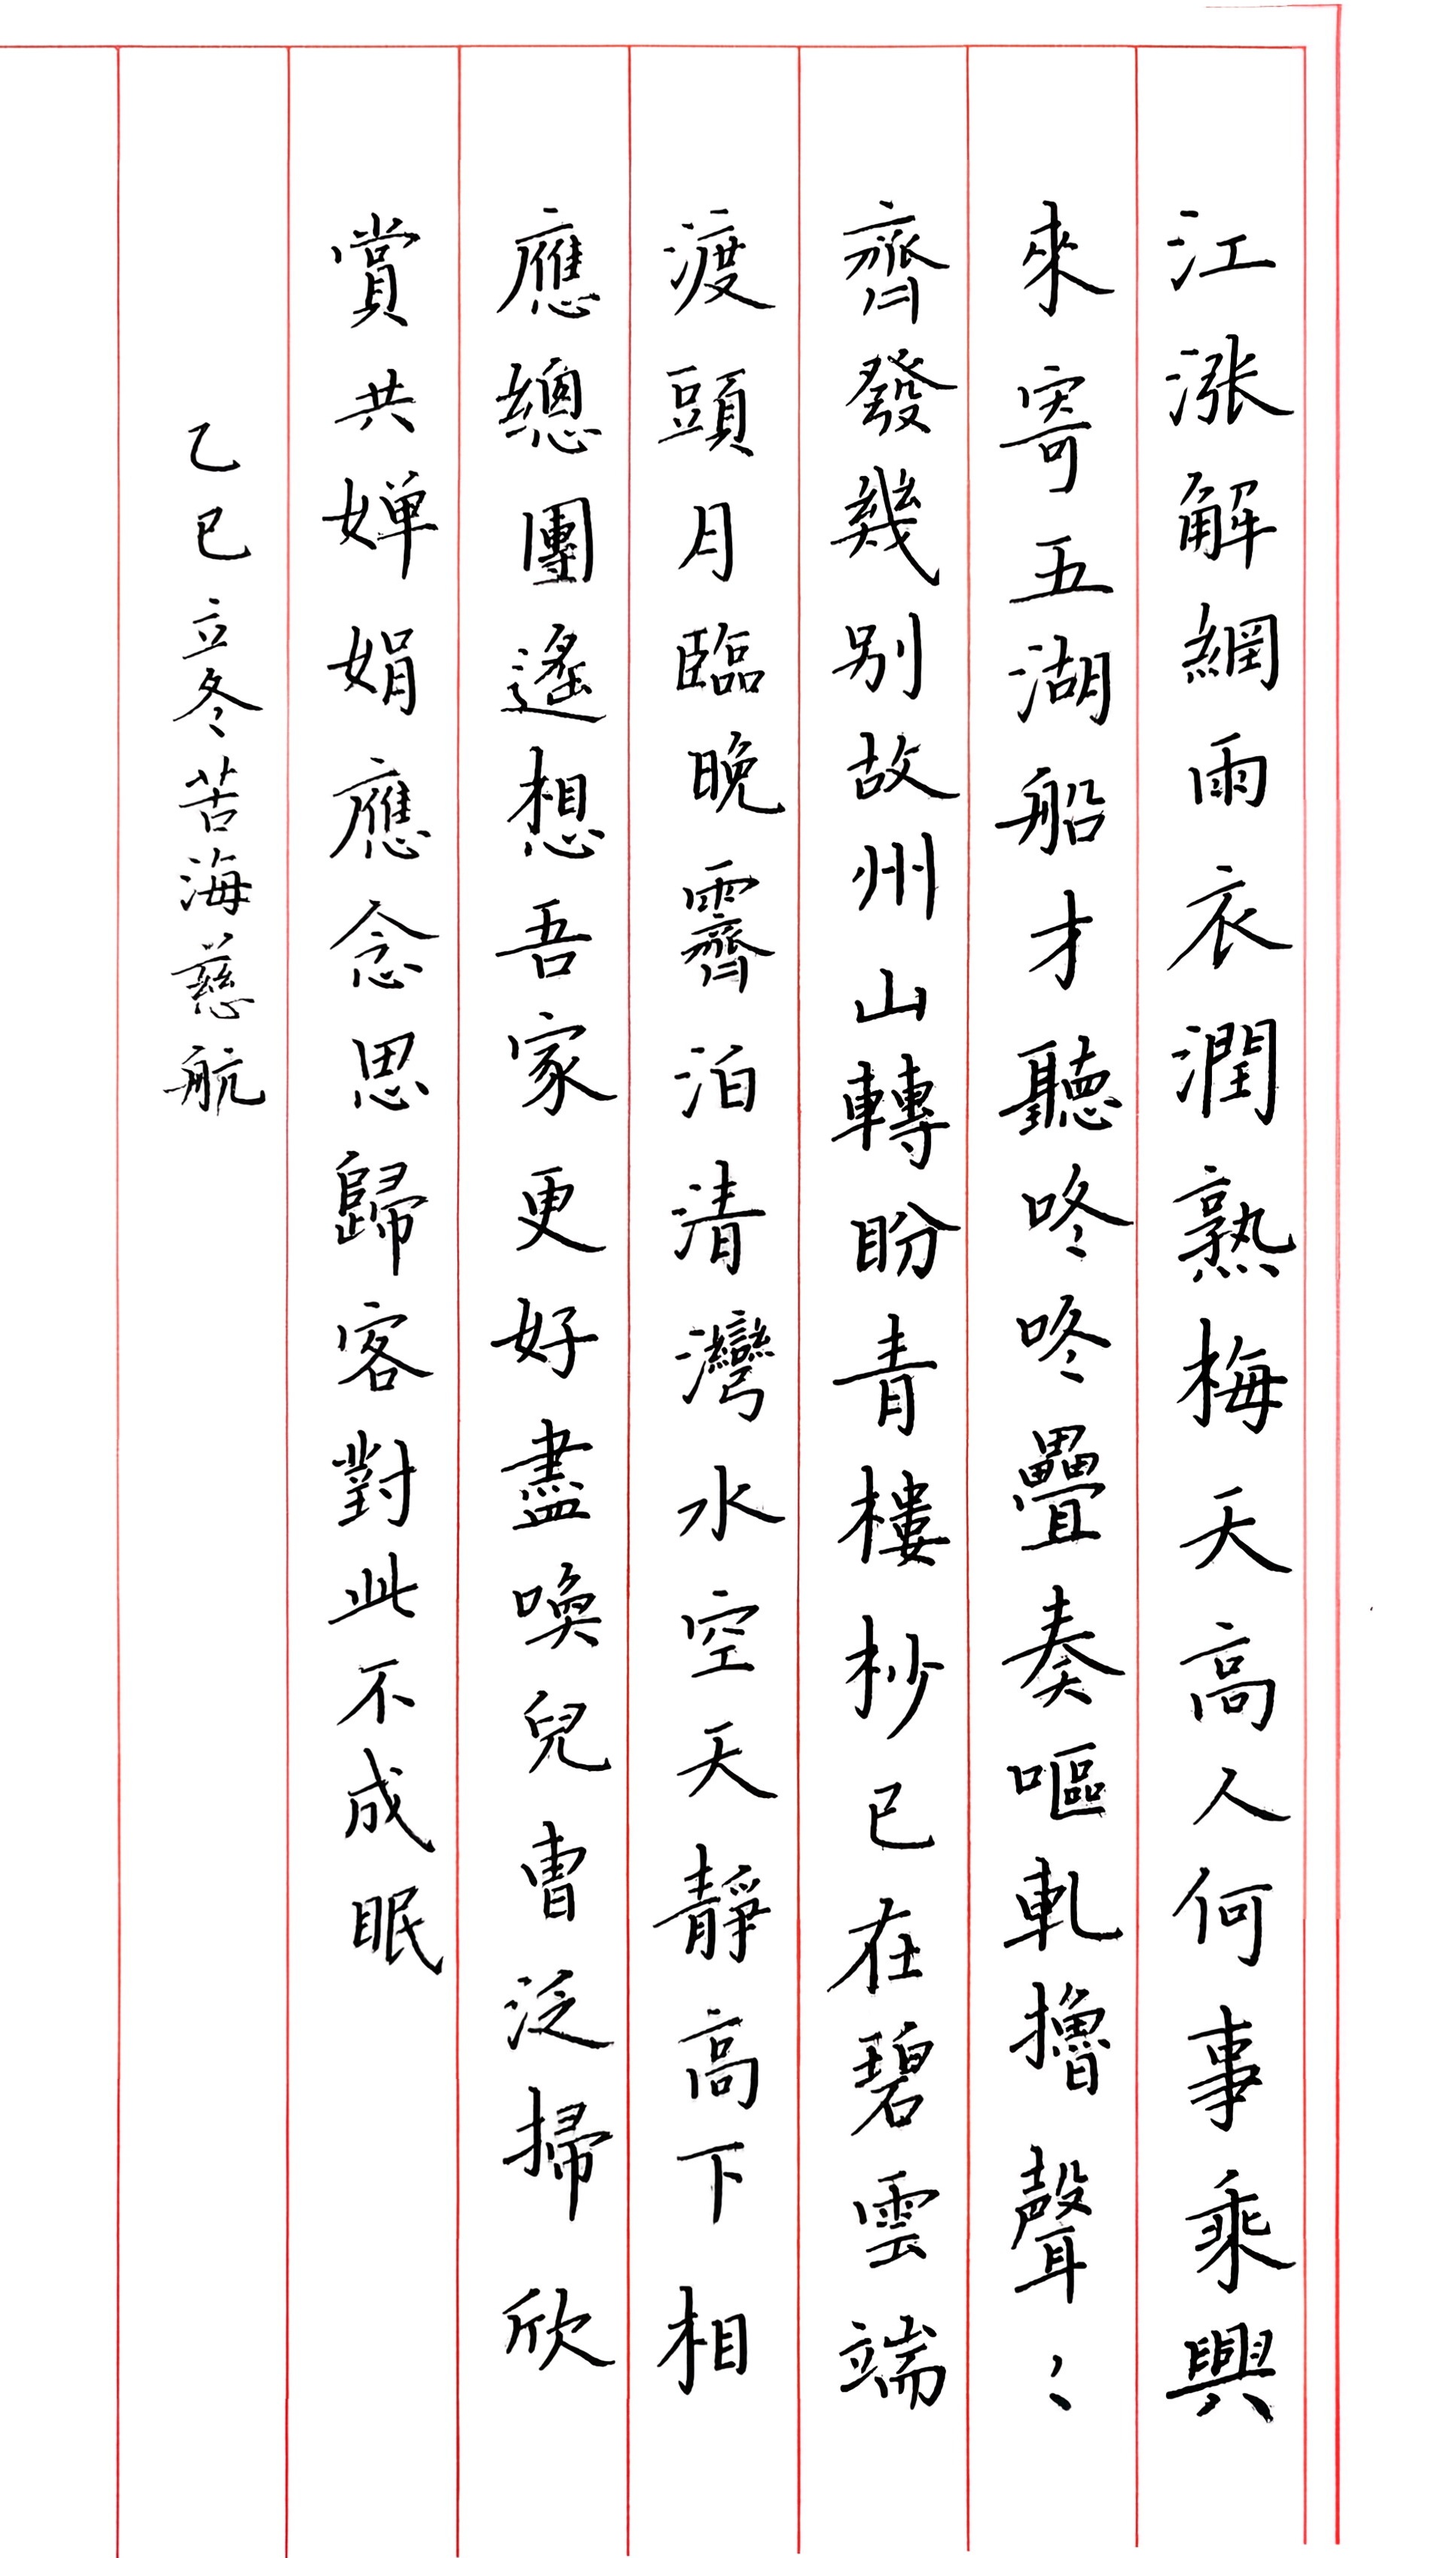 江漲解網雨衣潤熟梅天高人何事乘興
來寄五湖船才聽咚咚疊奏嘔軋擼聲⺀
齊發幾别故州山轉盼青樓杪已在碧雲端
渡頭月臨晚霽泊清灣水空天靜高下相
應總團遙想吾家更好盡喚兒曹泛掃欣
賞共嬋娟應念思歸客對此不成眠
乙巳立冬苦海慈航